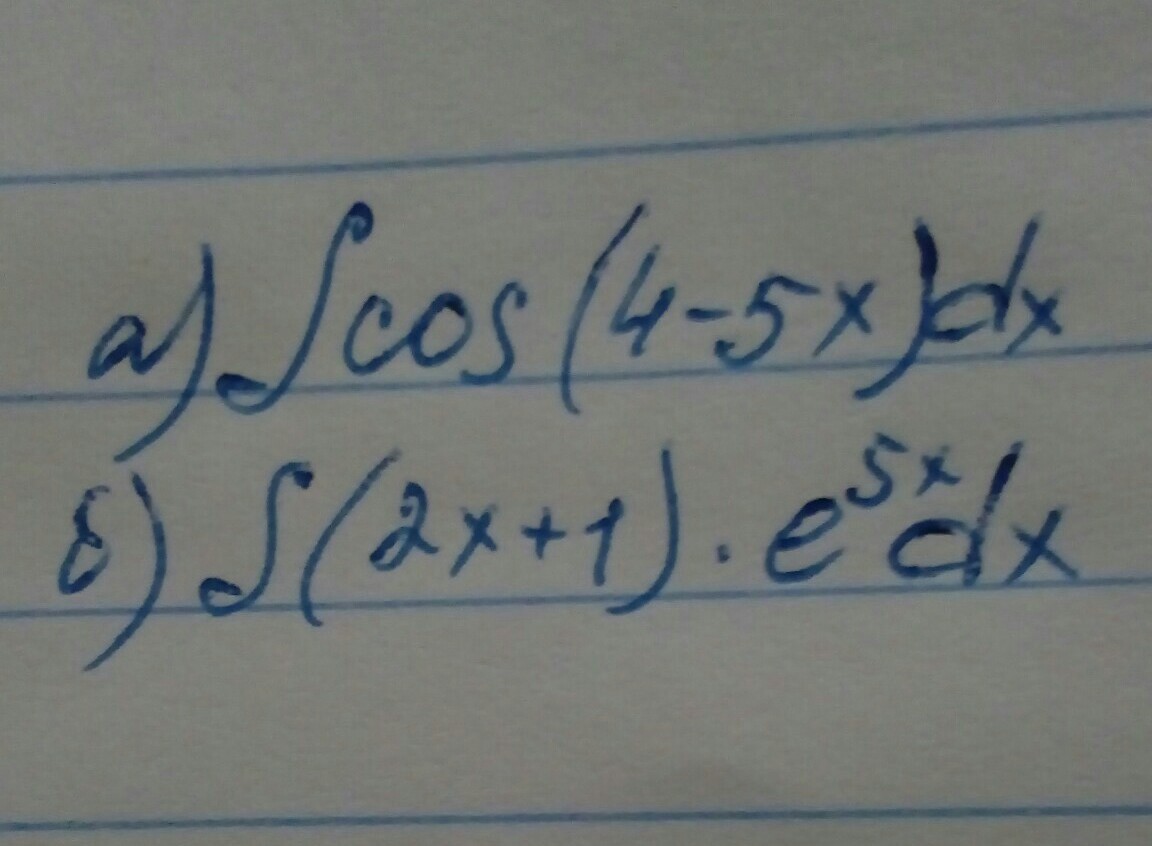 а) ∫cos(4-5x)dx
б) ∫(2x+1)·e^{5x}dx